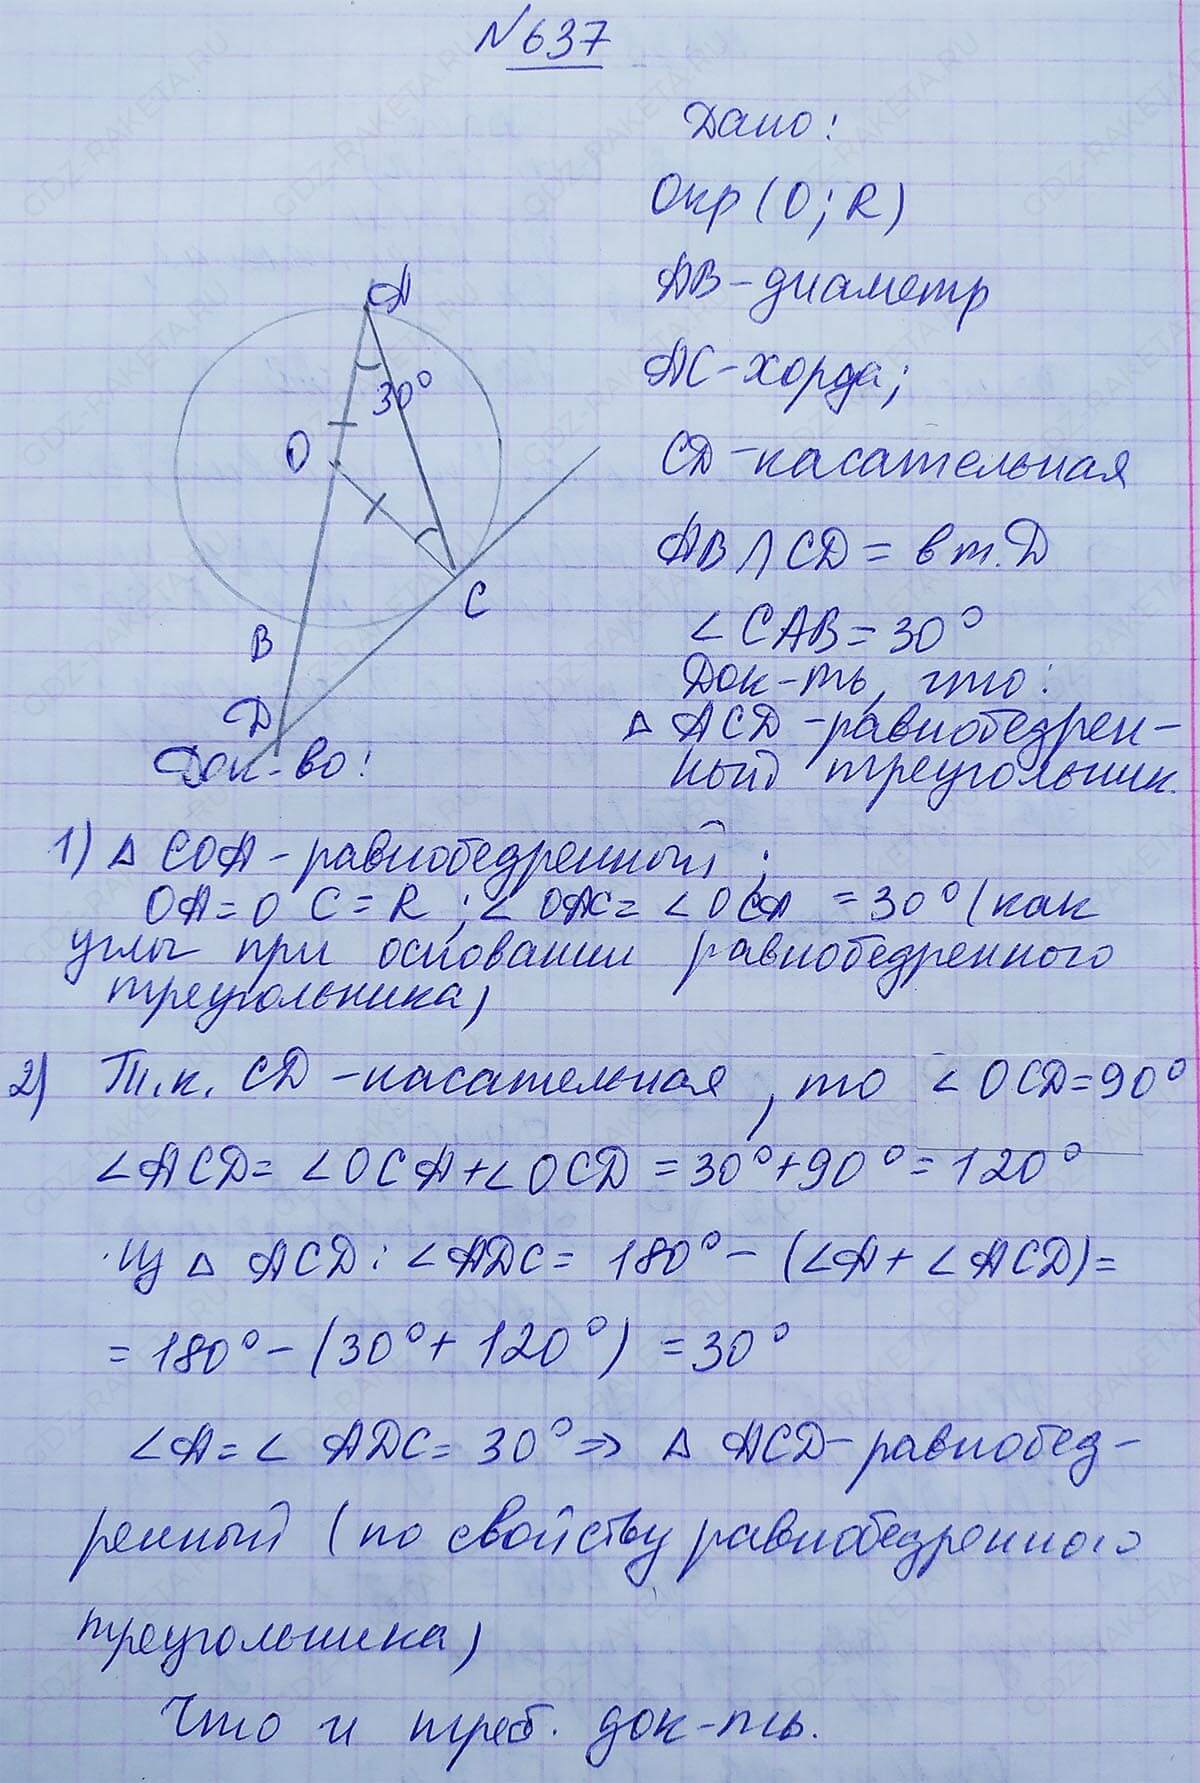 №637
Дано:
Окр (O; R)
AB-диаметр
AC-хорда;
CD-касательная
AB∩CD = в т. D
∠CAB=30°
Док-ть, что:
△ ACD-равнобедрен-
ный треугольник.
A
30°
O
C
B
D
Док-во:
1) △ COA-равнобедренный;
OA=OC=R; ∠OAC=∠OCA=30° (как
углы при основании равнобедренного
треугольника)
2) Т.к. CD-касательная, то ∠OCD=90°
∠ACD=∠OCA+∠OCD=30°+90°=120°
Из △ ACD: ∠ADC=180°-(∠A+∠ACD)=
=180°-(30°+120°)=30°
∠A=∠ADC=30°⇒ △ ACD-равнобед-
ренный (по свойству равнобедренного
треугольника)
Что и треб. док-ть.
GDZ-RAKETA.RU